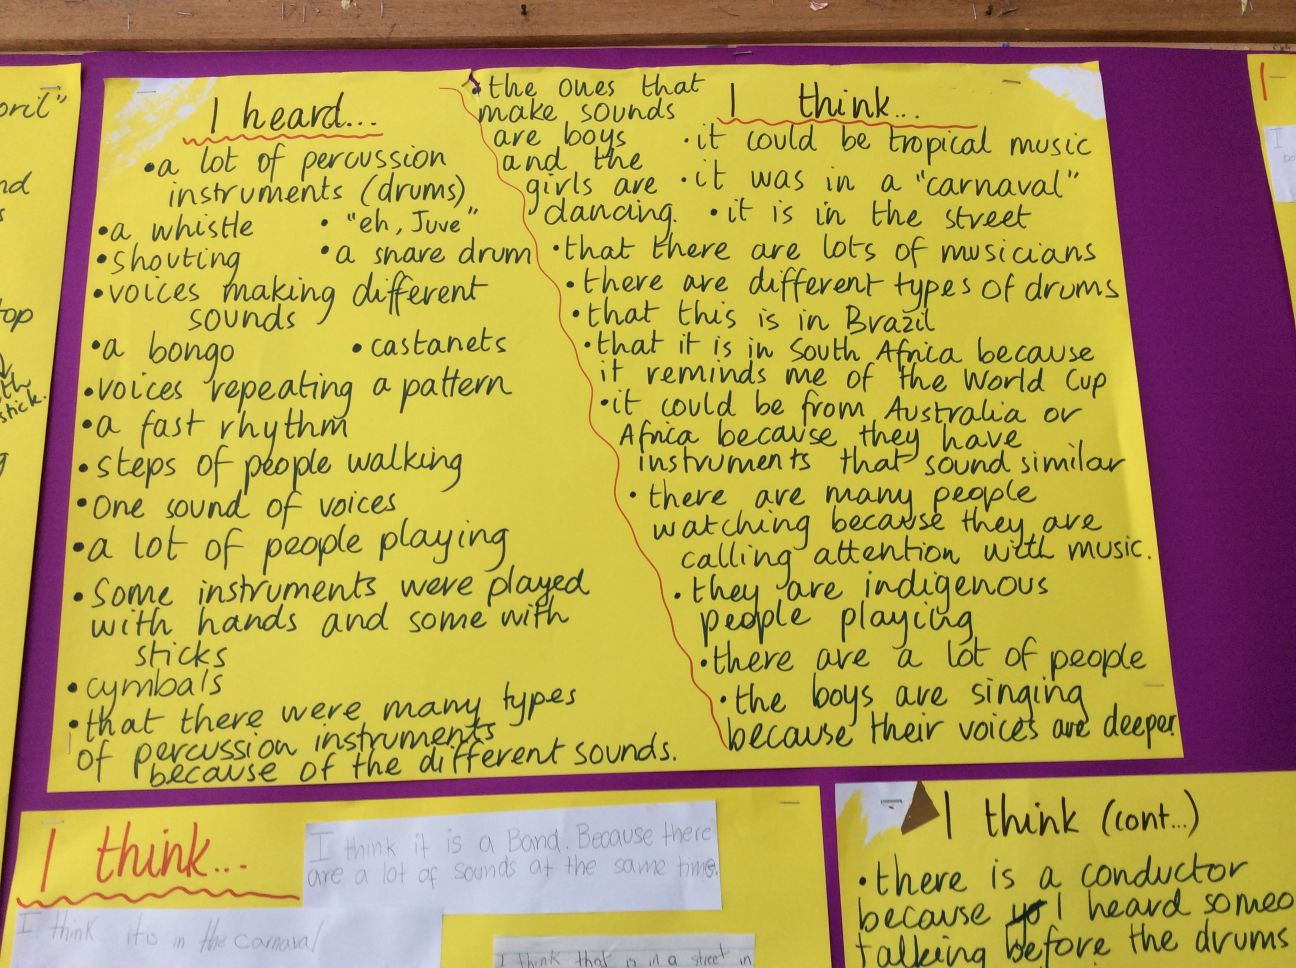 I heard...
• a lot of percussion
instruments (drums)
• a whistle
• "eh, Juve"
• shouting
• a snare drum
• voices making different
sounds
• a bongo
• castanets
• voices repeating a pattern
• a fast rhythm
• steps of people walking
• One sound of voices
• a lot of people playing
• Some instruments were played
with hands and some with
sticks
• cymbals
• that there were many types
of percussion instruments
because of the different sounds.
• the ones that
make sounds
are boys
and the
girls are
dancing.
I think...
• it could be tropical music
• it was in a "carnaval"
• it is in the street
• that there are lots of musicians
• there are different types of drums
• that this is in Brazil
• that it is in South Africa because
it reminds me of the World Cup
• it could be from Australia or
Africa because they have
instruments that sound similar
• there are many people
watching because they are
calling attention with music.
• they are indigenous
people playing
• there are a lot of people
• the boys are singing
because their voices are deeper
I think...
I think it is a Band. Because there
are a lot of sounds at the same time.
I think it is in the carnaval
I think that is in a street in
I think (cont...)
• there is a conductor
because I heard someo
talking before the drums
stick.